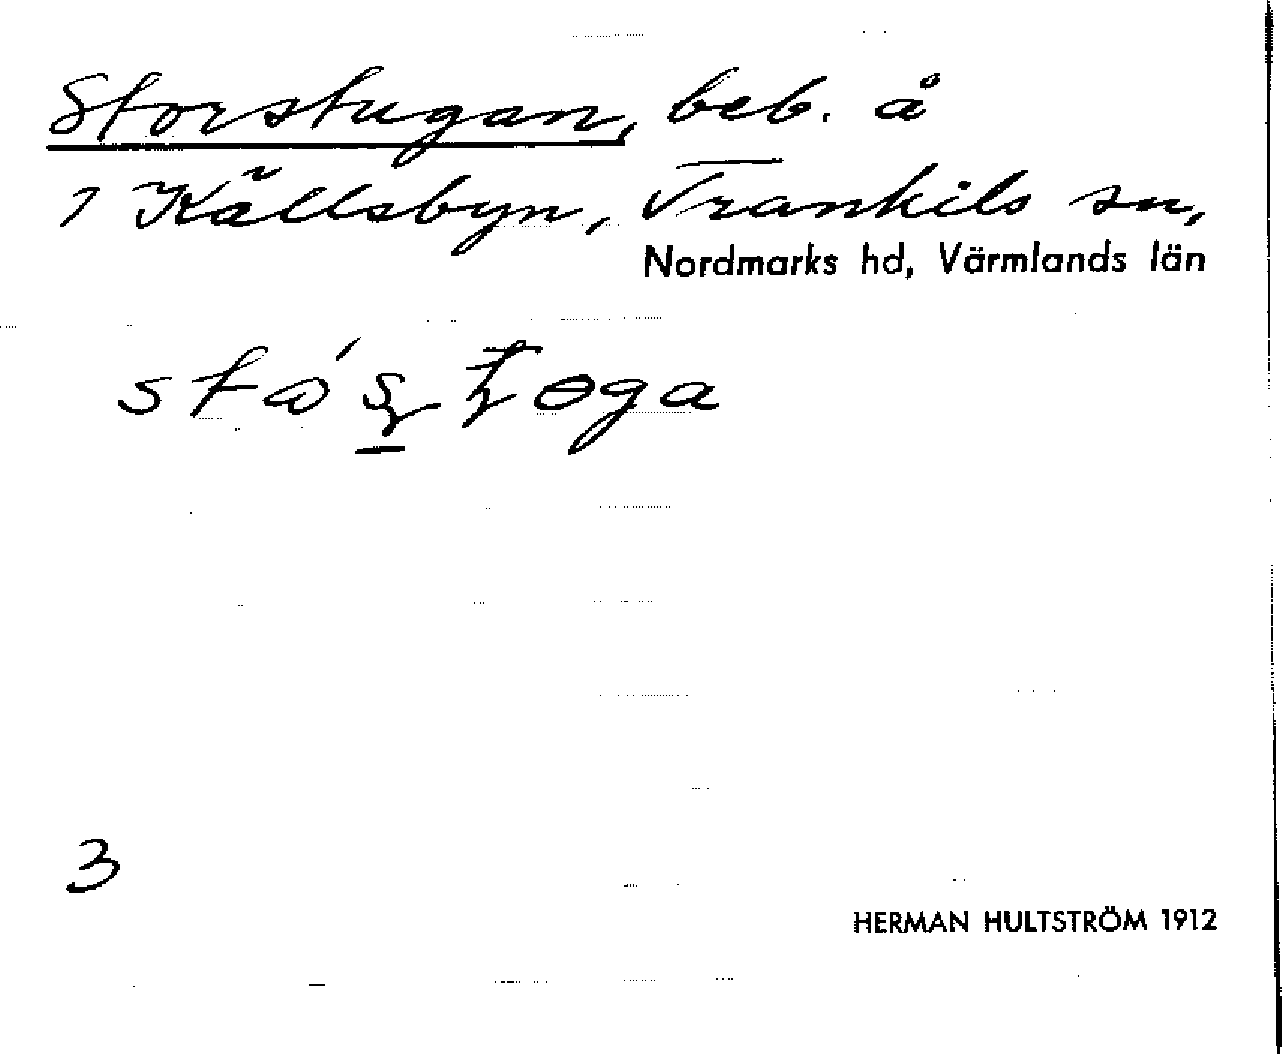 Storstugan, beb. å
1 Källsbyn, Trankils sn,
Nordmarks hd, Värmlands län
3
HERMAN HULTSTRÖM 1912